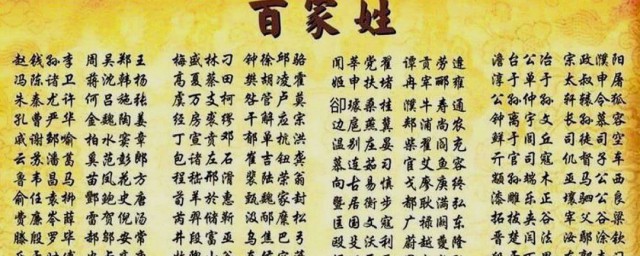 百家姓
赵钱孙李 周吴郑王 梅盛林刁 钟徐邱骆 闻莘党翟 谭贡劳逄 澹台公冶 宗政濮阳
冯陈褚卫 蒋沈韩杨 高夏蔡田 樊胡凌霍 姬申扶堵 冉宰郦雍 淳于单于 太叔申屠
朱秦尤许 何吕施张 虞万支柯 昝管卢莫 璩桑桂 濮牛寿通 公孙仲孙 轩辕令狐
孔曹严华 金魏陶姜 经房裘缪 干解应宗 边扈燕冀 郏浦尚农 钟离宇文 长孙慕容
戚谢邹喻 柏水窦章 丁宣贲邓 郁单杭洪 温别庄晏 柴瞿阎充 鲜于闾丘 司徒司空
云苏潘葛 奚范彭郎 包诸左石 崔吉钮龚 慕连茹习 宦艾鱼容 亓官司寇 子车
鲁韦昌马 苗凤花方 程嵇邢滑 裴陆荣翁 向古易慎 戈廖庾终 颛孙端木 巫马公西
俞任袁柳 酆鲍史唐 荀羊於惠 甄家封 暨居衡步 都耿满弘 漆雕乐正 壤驷公良
费廉岑薛 雷贺倪汤 芮羿储靳 汲邴糜松 匡国文寇 广禄阙东 拓跋夹谷 宰父谷梁
滕殷罗毕 郝邬安常 井段富巫 乌焦巴弓 殳沃利 蔚越夔隆 晋楚闫法 汝鄢涂钦